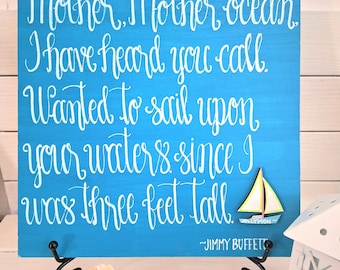 Mother, Mother ocean,
I have heard you call.
Wanted to sail upon
your waters since I
was three feet tall.
~JIMMY BUFFETT